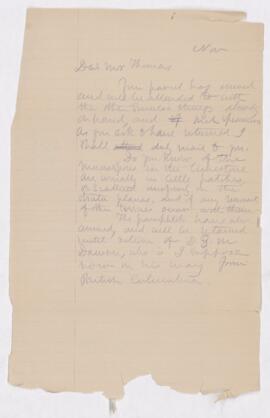 Nov
Dear Mr Thomas
Your parcel has arrived
and will be attended to with
the other
on hand, and such specimens
as you ask to have returned I
shall duly mail to you.
Do you know if the
in the
are usually in little patches
or scattered in the
strata planes. And if any
of other forms occur with them
The pamphlets have also
arrived, and will be retained
until return of D. G. M
Dawson, who is I suppose
now on his way from
British Columbia.